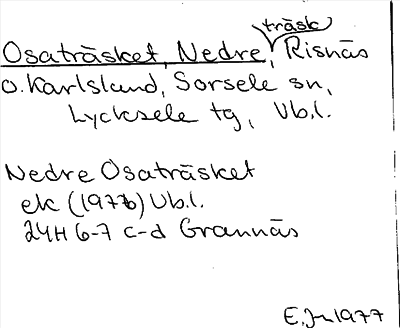 träsk
Osaträsket, Nedre, Risnäs
o. Karlsland, Sorsele sn,
Lycksele tg, Vb.l.
Nedre Osaträsket
ek (1976) Vb.l.
24H 6-7 c-d Grannäs
E.J-n 1977